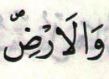 وَالاَرْضِؕ